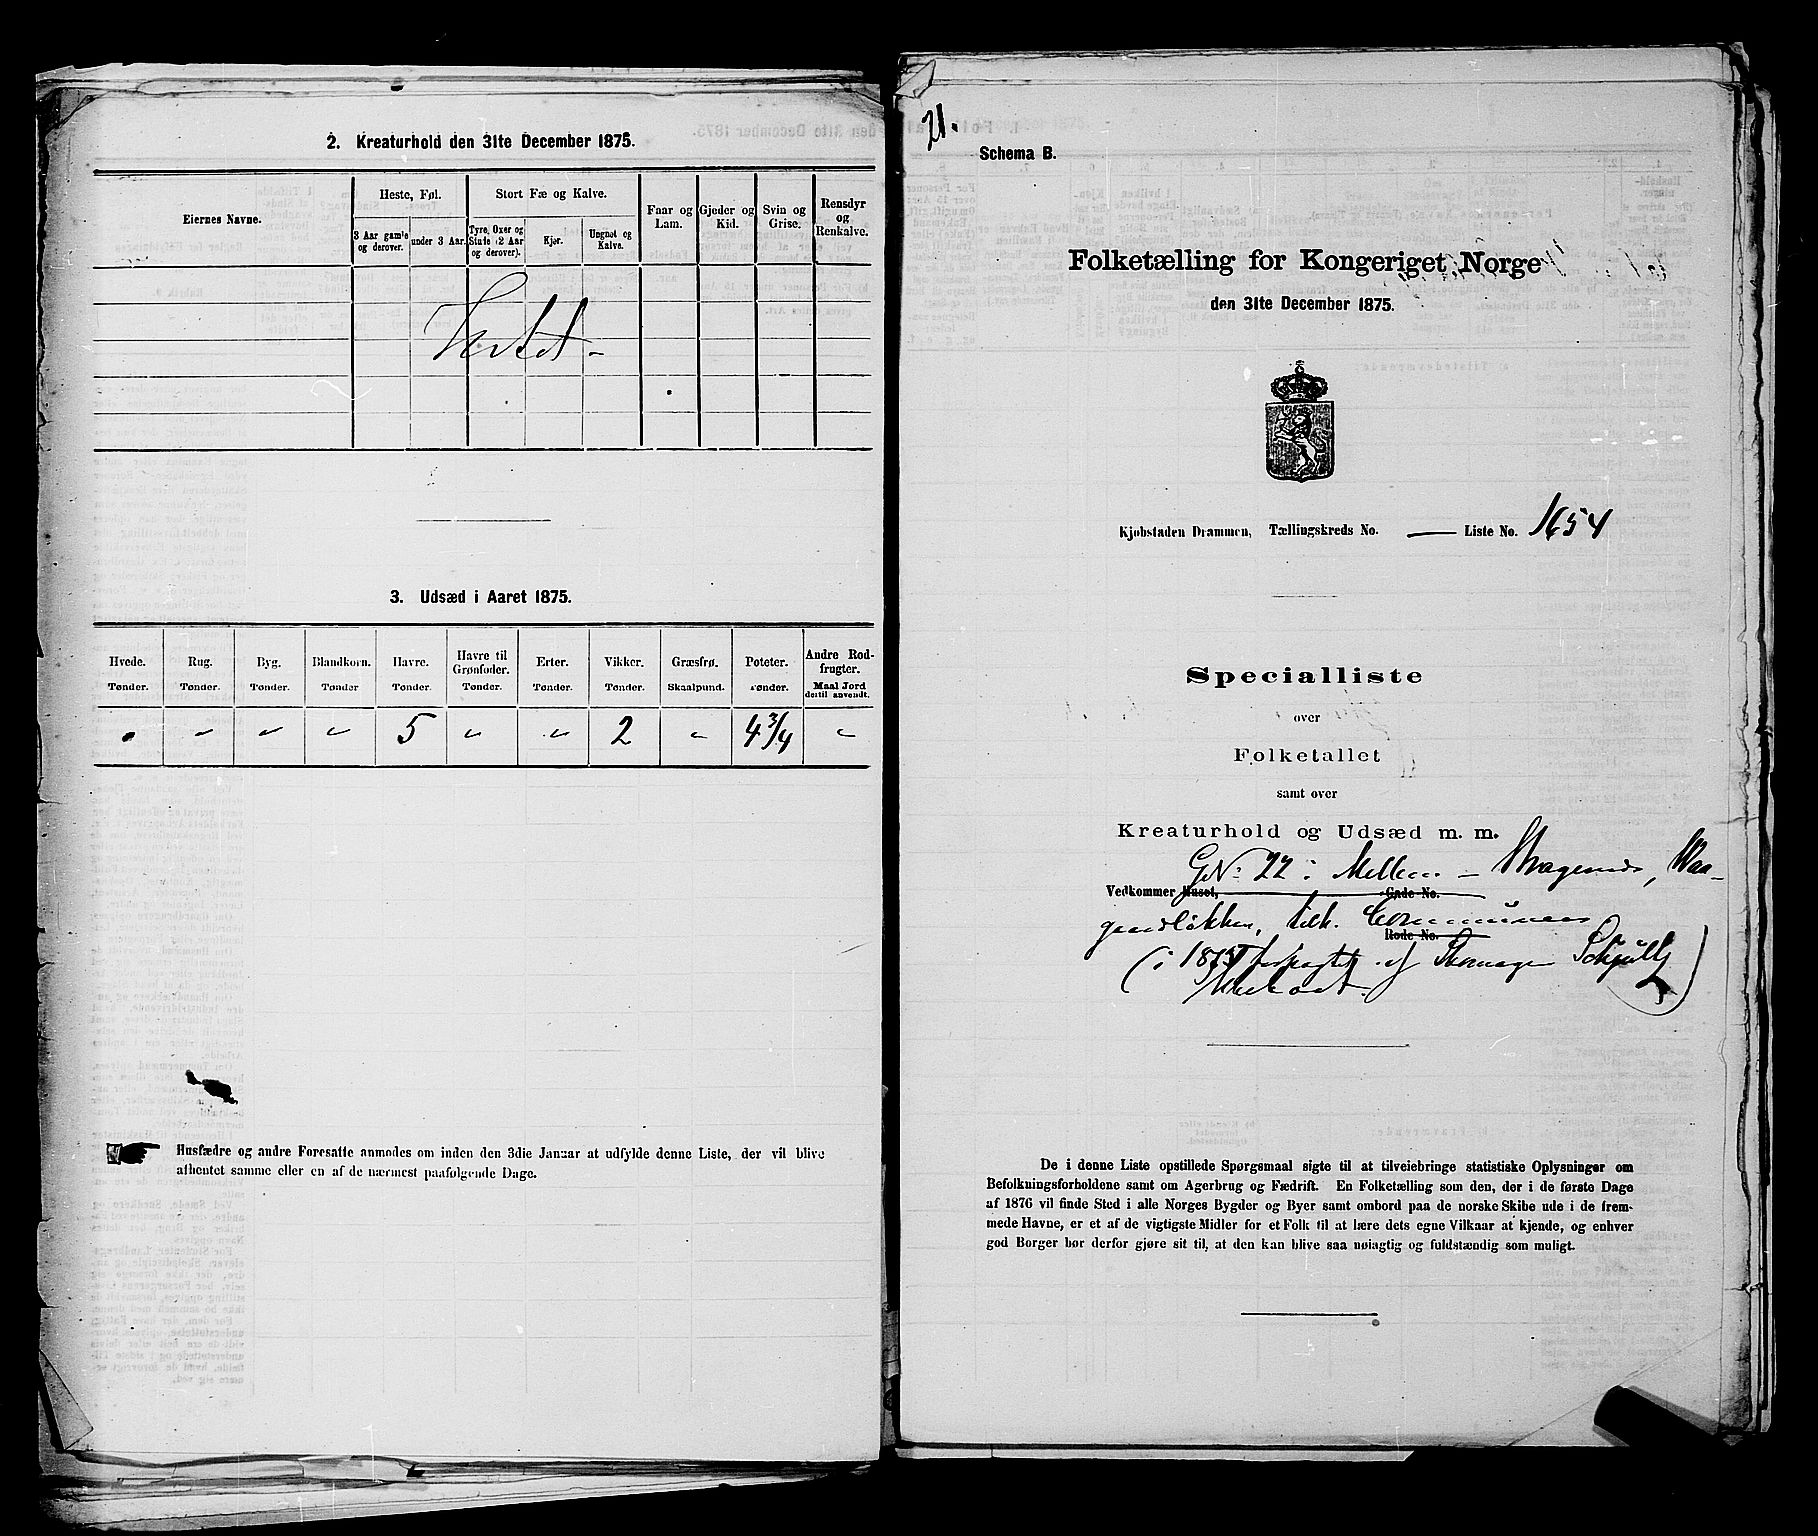 2. Kreaturhold den 31te December 1875.
Eiernes Navne.
Heste, Føl.
3 Aar gamle og derover.
under 3 Aar.
Stort Fæ og Kalve.
Tyre, Oxer og Stude (2 Aar og derover).
Kjør.
Ungnöt og Kalve.
Faar og Lam.
Gjeder og Kid.
Svin og Grise.
Rensdyr og Renkalve.
3. Udsæd i Aaret 1875.
Hvede. Rug. Byg. Blandkorn. Havre. Havre til Grønfoder. Erter. Vikker. Græsfrø. Poteter. Andre Rodfrugter.
Tønder. Tønder. Tønder. Tønder Tønder. Tønder. Tønder. Tønder. Skaalpund. Tønder. Maal Jord dertil anvendt.
" " " " 5 " " 2 " 4 3/4 "
Husfædre og andre Foresatte anmodes om inden den 3die Januar at udfylde denne Liste, der vil blive
afhentet samme eller en af de nærmest paafølgende Dage.
21.
Schema B.
Folketælling for Kongeriget Norge
den 31te December 1875.
Kjøbstaden Drammen, Tællingskreds No. — Liste No. 1654
Specialliste
over
Folketallet
samt over
Kreaturhold og Udsæd m. m.
GN: 22 i Mellem -
Vedkommer Huset, Gade No.
tilh. Communen
Rode No.
(i 1875 forpagtet af
De i denne Liste opstillede Spørgsmaal sigte til at tilveiebringe statistiske Oplysninger om
Befolkningsforholdene samt om Agerbrug og Fædrift. En Folketælling som den, der i de første Dage
af 1876 vil finde Sted i alle Norges Bygder og Byer samt ombord paa de norske Skibe ude i de frem-
mede Havne, er et af de vigtigste Midler for et Folk til at lære dets egne Vilkaar at kjende, og enhver
god Borger bør derfor gjøre sit til, at den kan blive saa nøiagtig og fuldstændig som muligt.